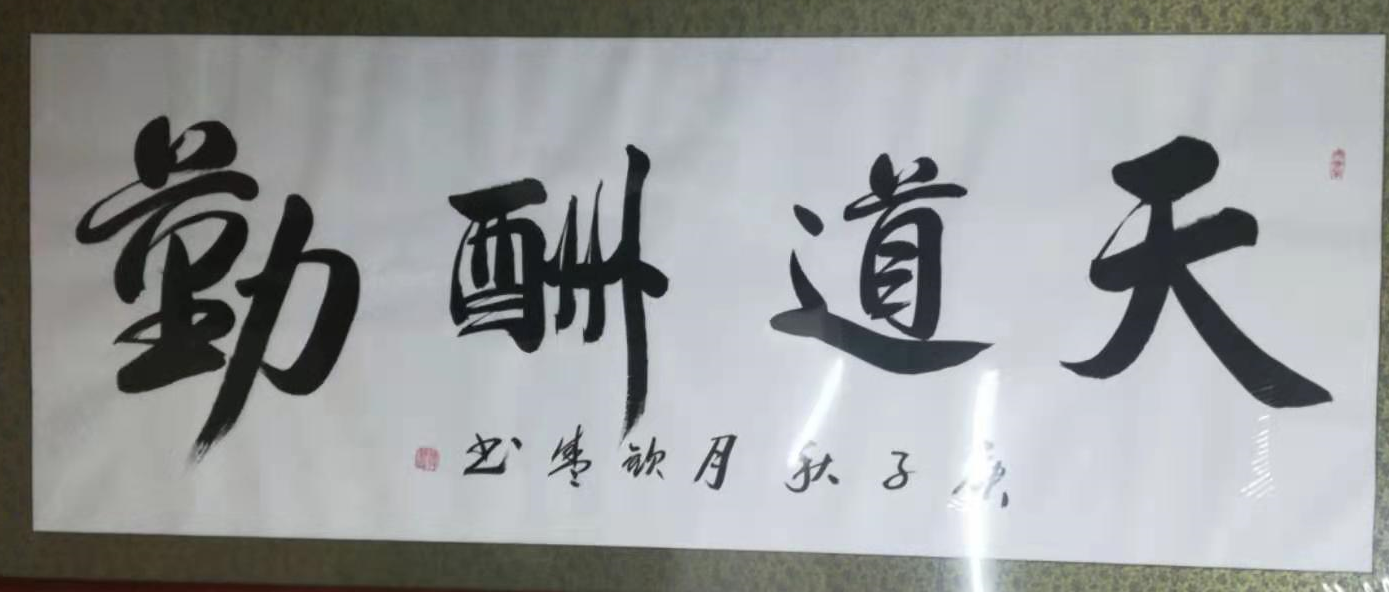 天道酬勤
庚子秋月钦书